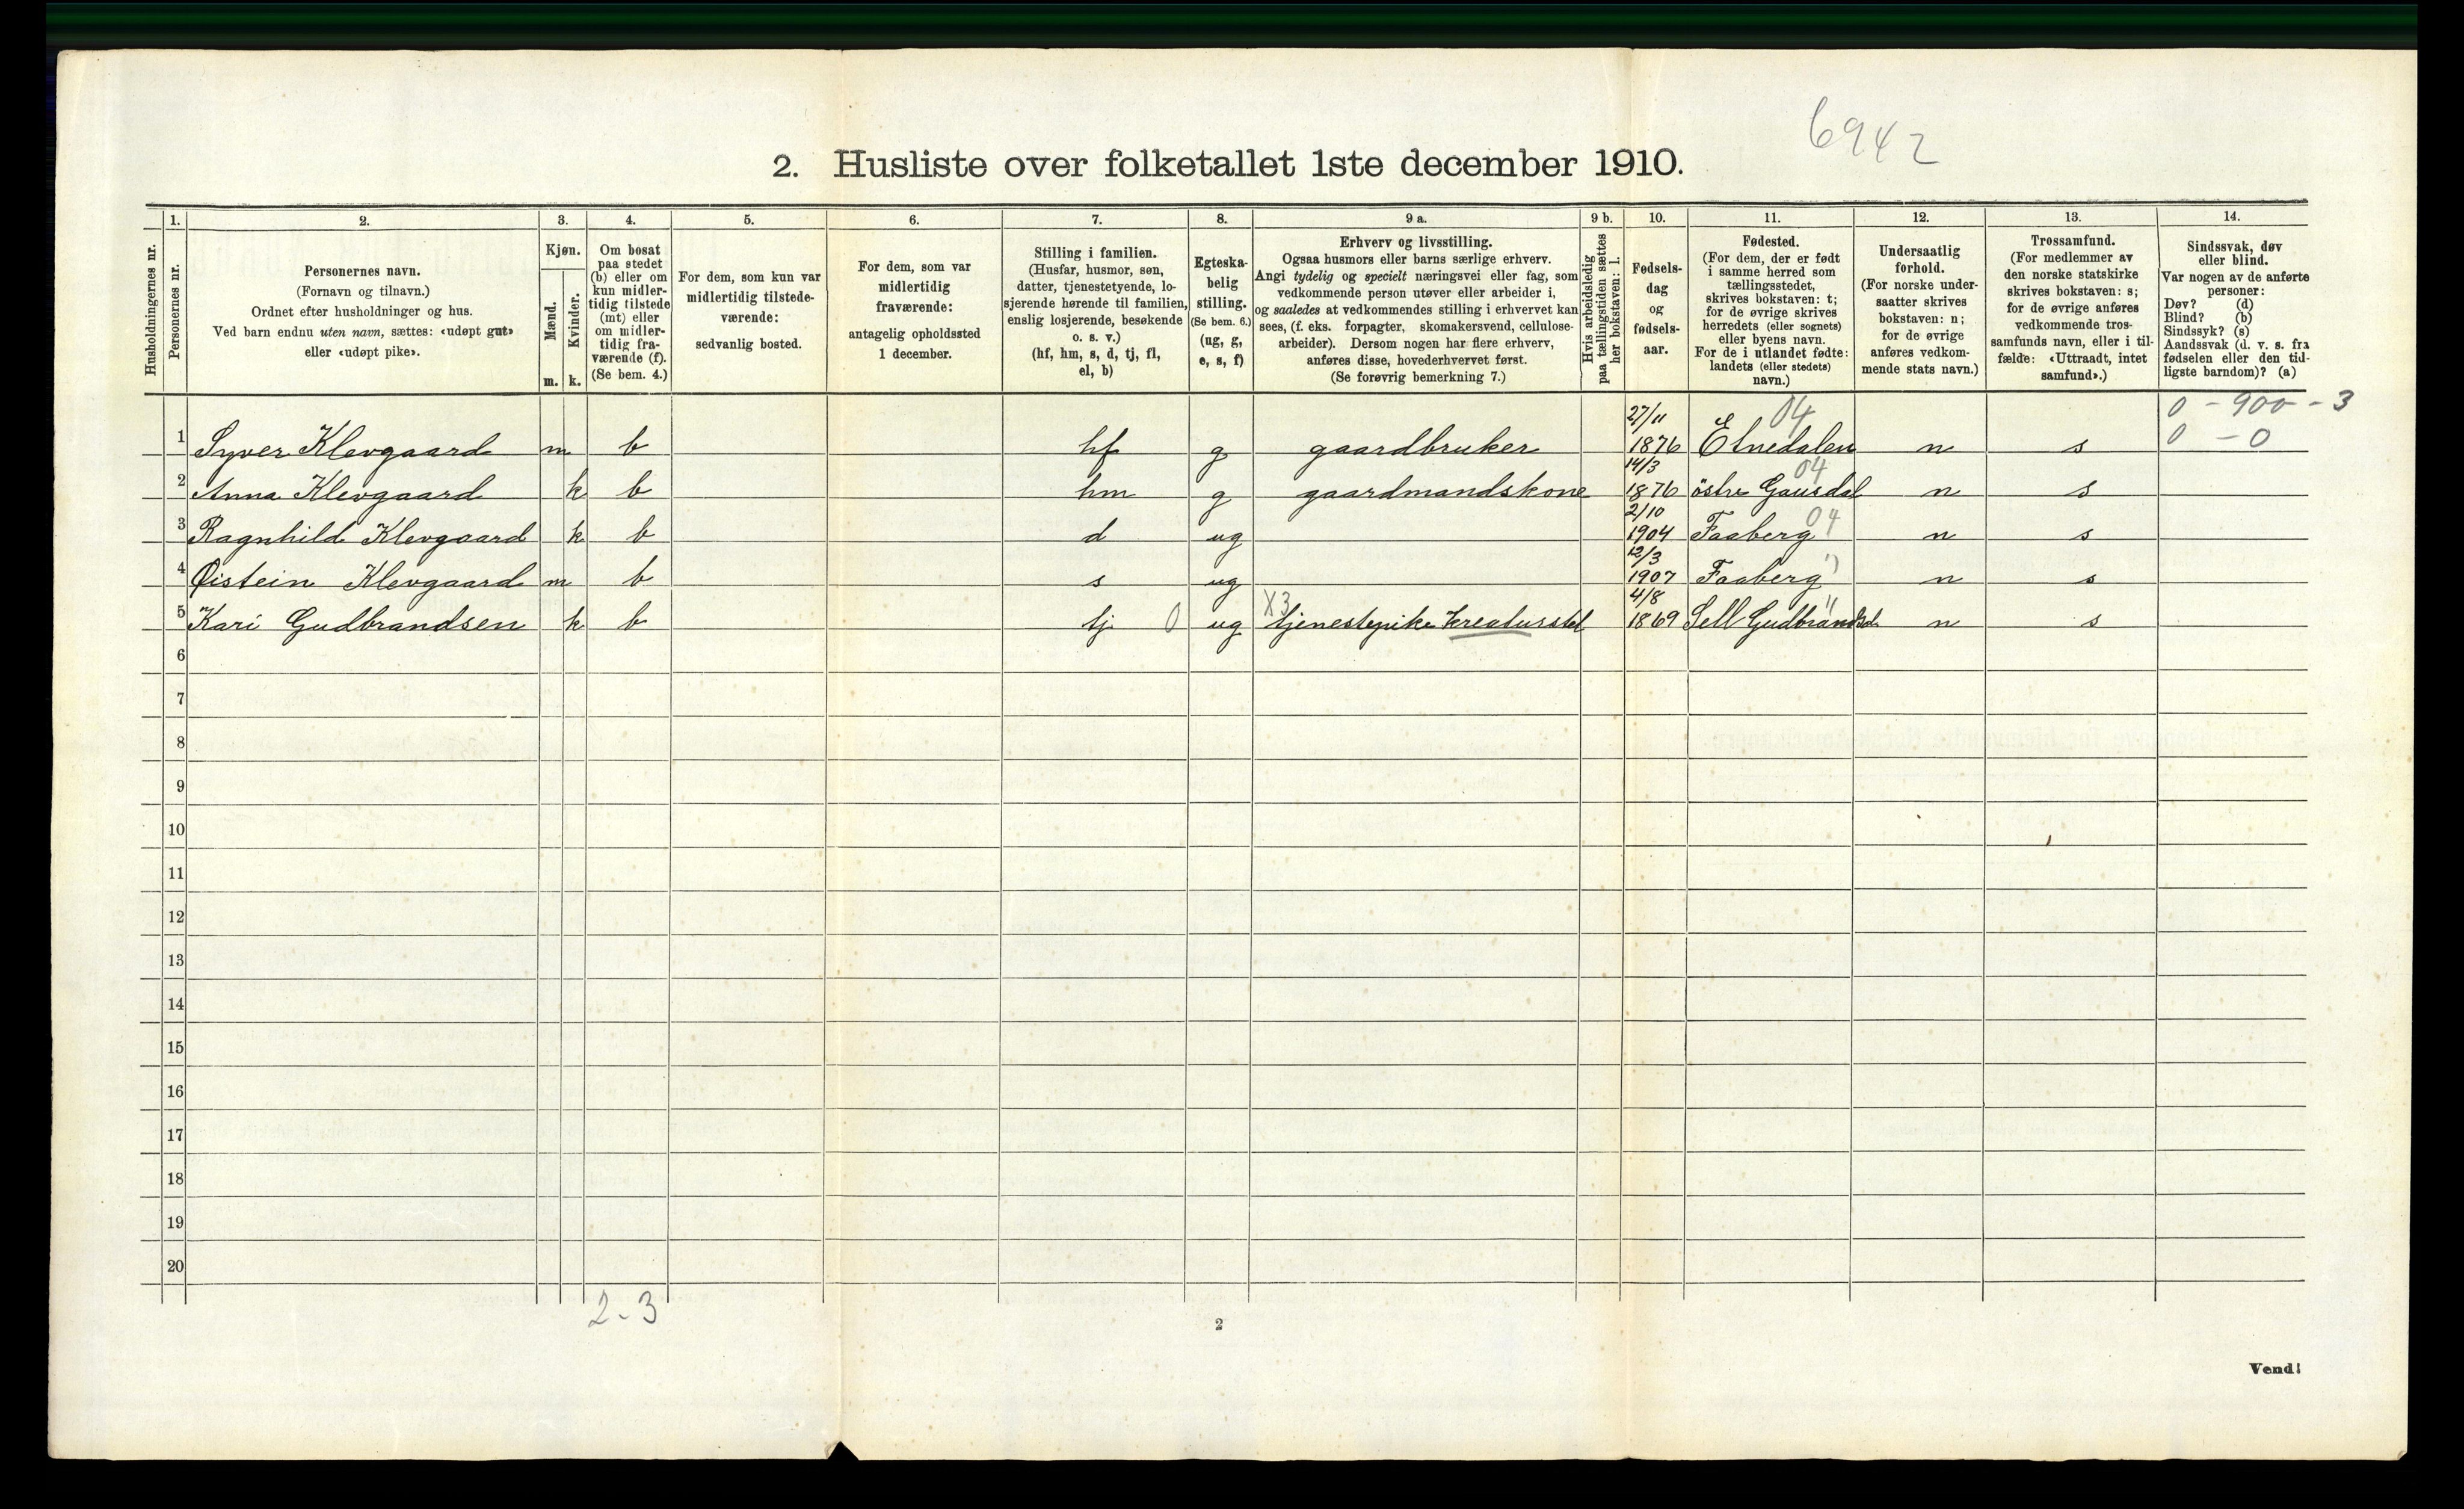 6942
2. Husliste over folketallet 1ste december 1910.
1. 2. 3. 4. 5. 6. 7. 8. 9 a. 9 b. 10. 11. 12. 13. 14.
Husholdningernes nr.
Personernes nr.
Personernes navn.
(Fornavn og tilnavn.)
Ordnet efter husholdninger og hus.
Ved barn endnu uten navn, sættes: «udøpt gut»
eller «udøpt pike».
Kjøn.
Mænd.
Kvinder.
m. k.
Om bosat
paa stedet
(b) eller om
kun midler-
tidig tilstede
(mt) eller
om midler-
tidig fra-
værende (f).
(Se bem. 4.)
For dem, som kun var
midlertidig tilstede-
værende:
sedvanlig bosted.
For dem, som var
midlertidig
fraværende:
antagelig opholdssted
1 december.
Stilling i familien.
(Husfar, husmor, søn,
datter, tjenestetyende, lo-
sjerende hørende til familien,
enslig losjerende, besøkende
o. s. v.)
(hf, hm, s, d, tj, fl,
el, b)
Egteska-
belig
stilling.
(Se bem. 6.)
(ug, g,
e, s, f)
Erhverv og livsstilling.
Ogsaa husmors eller barns særlige erhverv.
Angi tydelig og specielt næringsvei eller fag, som
vedkommende person utøver eller arbeider i,
og saaledes at vedkommendes stilling i erhvervet kan
sees, (f. eks. forpagter, skomakersvend, cellulose-
arbeider). Dersom nogen har flere erhverv,
anføres disse, hovederhvervet først.
(Se forøvrig bemerkning 7.)
Hvis arbeidsledig
paa tællingstiden sættes
her bokstaven: l.
Fødsels-
dag
og
fødsels-
aar.
Fødested.
(For dem, der er født
i samme herred som
tællingsstedet,
skrives bokstaven: t;
for de øvrige skrives
herredets (eller sognets)
eller byens navn.
For de i utlandet fødte:
landets (eller stedets)
navn.)
Undersaatlig
forhold.
(For norske under-
saatter skrives
bokstaven: n;
for de øvrige
anføres vedkom-
mende stats navn.)
Trossamfund.
(For medlemmer av
den norske statskirke
skrives bokstaven: s;
for de øvrige anføres
vedkommende tros-
samfunds navn, eller i til-
fælde: «Uttraadt, intet
samfund».)
Sindssvak, døv
eller blind.
Var nogen av de anførte
personer:
Døv? (d)
Blind? (b)
Sindssyk? (s)
Aandssvak (d. v. s. fra
fødselen eller den tid-
ligste barndom)? (a)
27/11 04 0 - 900 - 3
1 Syver Klevgaard m b hf g gaardbruker 1876 Etnedalen n s 0 - 0
14/3 04
2 Anna Klevgaard k b hm g gaardmandskone 1876 östre Gausdal n s
2/10 04
3 Ragnhild Klevgaard k b d ug 1904 Faaberg n s
12/3 "
4 Øistein Klevgaard m b s ug 1907 Faaberg n s
X3 4/8 "
5 Kari Gudbrandsen k b tj 0 ug tjenestepike kreaturstel 1869 Sell Gudbrandsd. n s
6
7
8
9
10
11
12
13
14
15
16
17
18
19
20
2-3
2
Vend!